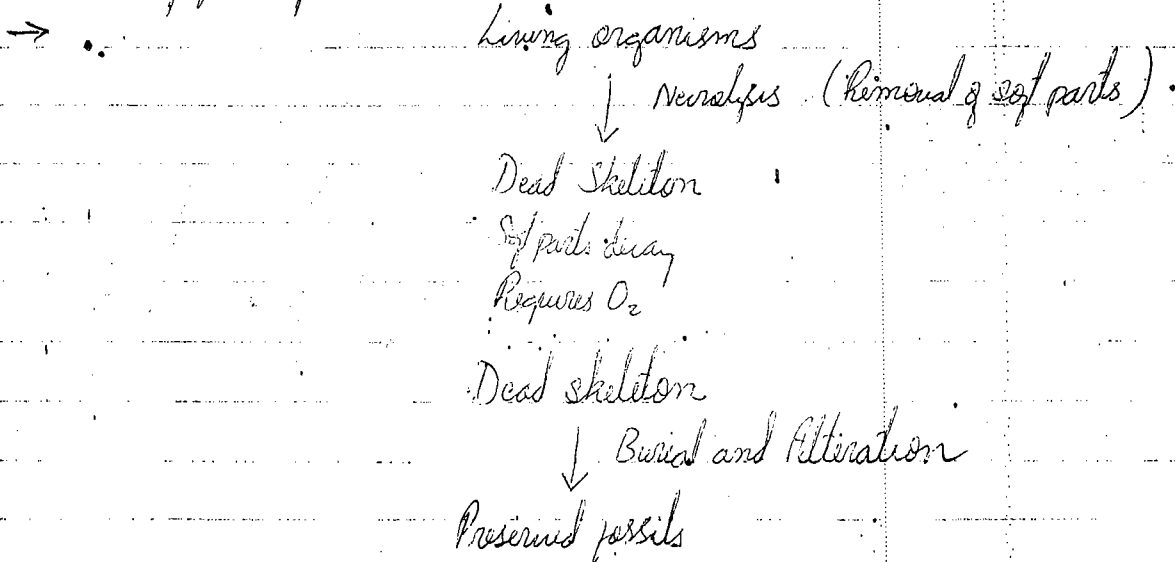 → Living organisms
↓ Necrolysis (Removal of soft parts).
Dead Skeleton
Soft parts decay
Requires O₂
Dead skeleton
↓ Burial and Alteration
Preserved fossils